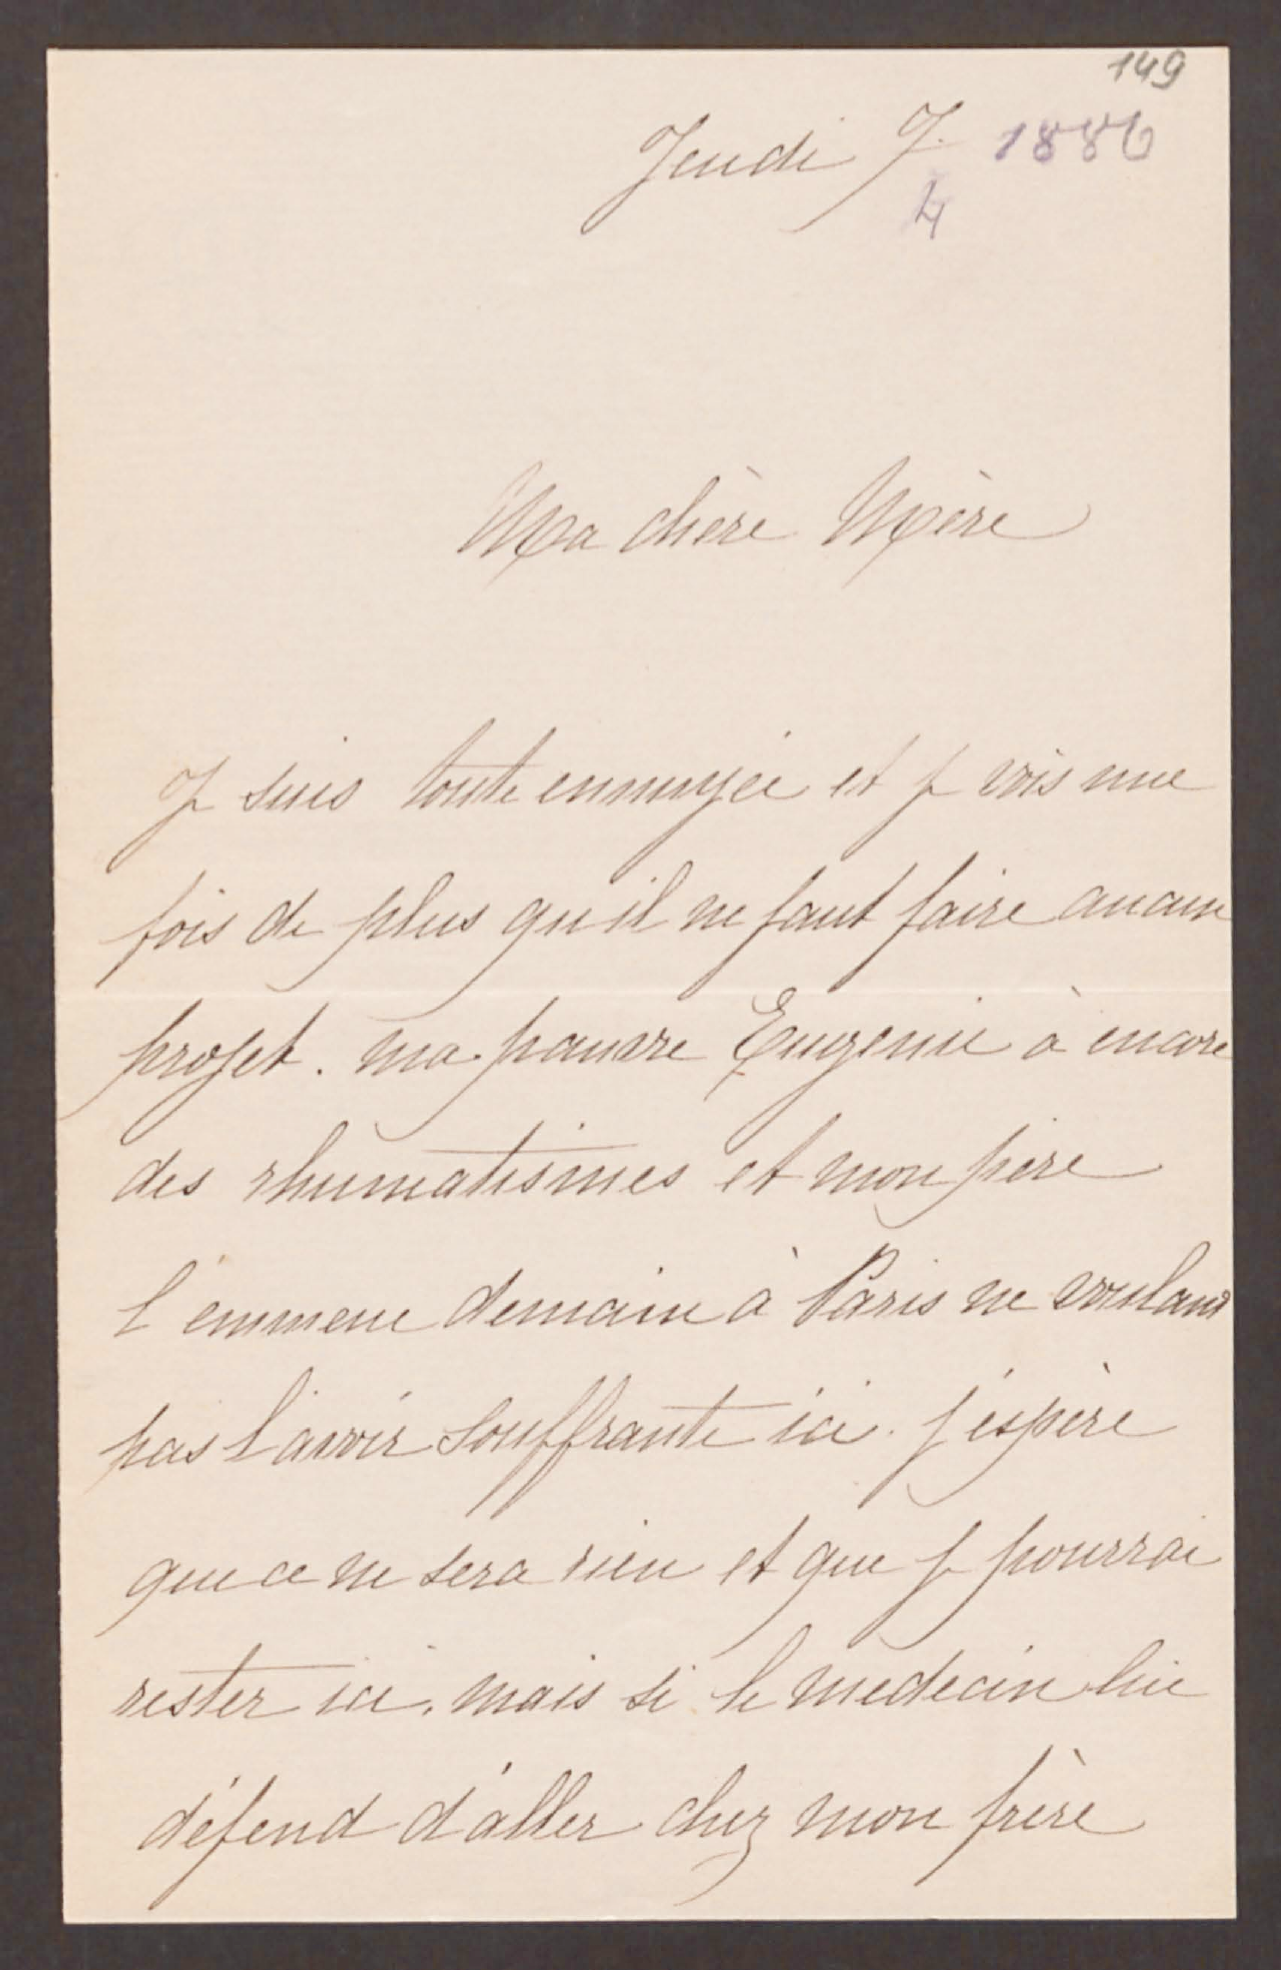 149
Jeudi 7. 1886
4
Ma chère Mère
Je suis toute ennuyée et je vois une
fois de plus qu'il ne faut faire aucun
projet. ma pauvre Eugenie à encore
des rhumatismes et mon père
l'emmene demain à Paris ne voulant
pas l'avoir souffrante ici. j'espère
que ce ne sera rien et que je pourrai
rester ici. mais si le medecin lui
défend d'aller chez mon frère